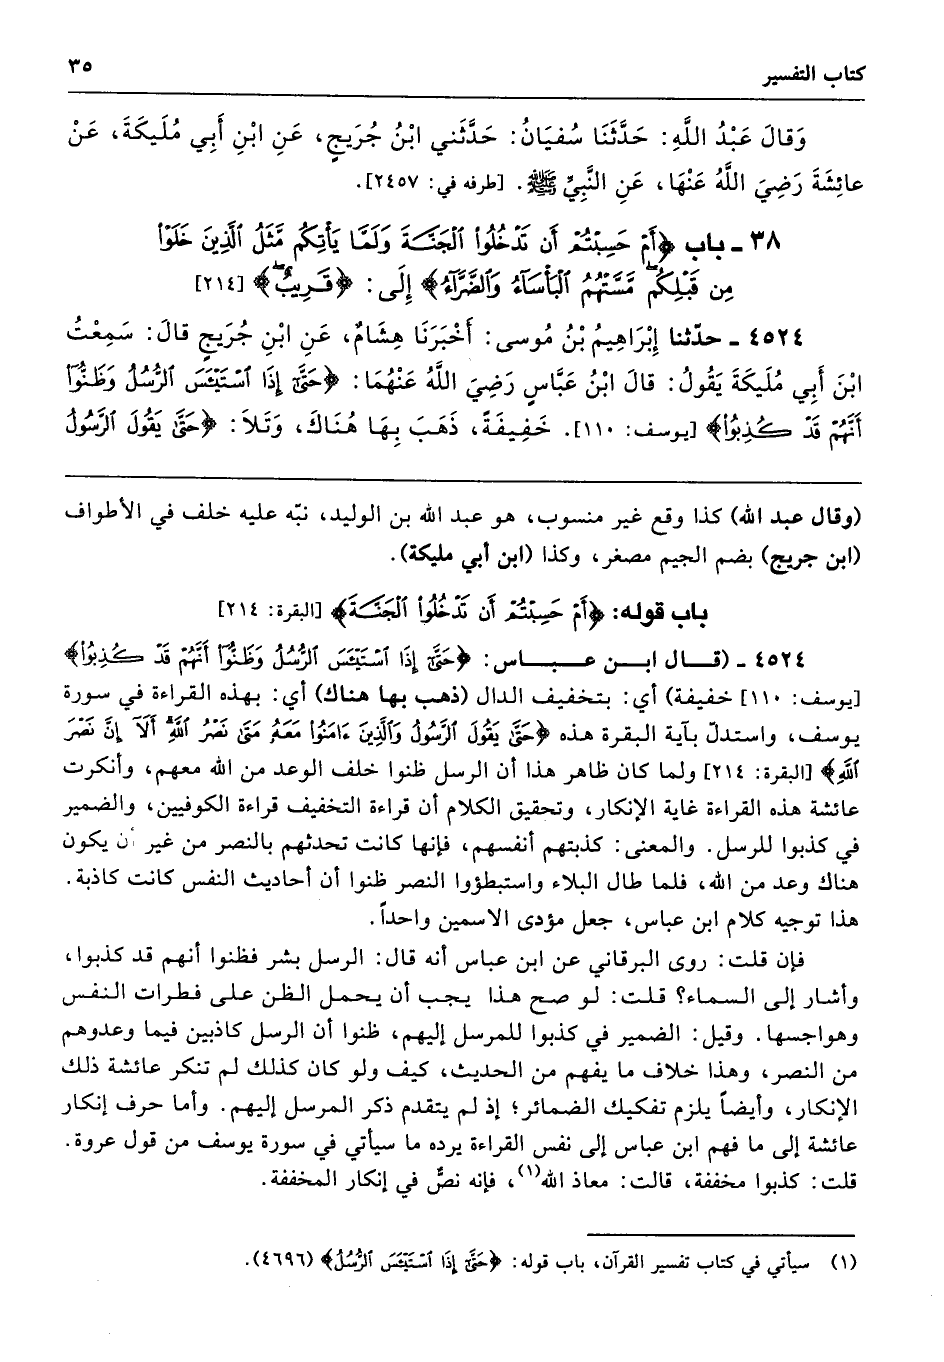 كتاب التفسير
٣٥
وَقالَ عَبْدُ اللَّهِ: حَدَّثَنَا سُفيَانُ: حَدَّثَني ابْنُ جُرَيجٍ، عَنِ ابْنِ أَبِي مُلَيكَةَ، عَنْ
عائِشَةَ رَضِيَ اللَّهُ عَنْهَا، عَنِ النَّبِيِّ ﷺ. [طرفه في: ٢٤٥٧].
٣٨ ـ باب ﴿أَمْ حَسِبْتُمْ أَن تَدْخُلُواْ ٱلْجَنَّةَ وَلَمَّا يَأْتِكُم مَّثَلُ ٱلَّذِينَ خَلَوْاْ
مِن قَبْلِكُمۖ مَّسَّتْهُمُ ٱلْبَأْسَآءُ وَٱلضَّرَّآءُ﴾ إِلَى: ﴿قَرِيبٌ﴾ [٢١٤]
٤٥٢٤ ـ حدّثنا إِبْرَاهِيمُ بْنُ مُوسى: أَخْبَرَنَا هِشَامٌ، عَنِ ابْنِ جُرَيجٍ قالَ: سَمِعْتُ
ابْنَ أَبِي مُلَيكَةَ يَقُولُ: قالَ ابْنُ عَبَّاسٍ رَضِيَ اللَّهُ عَنْهُمَا: ﴿حَتَّىٰٓ إِذَا ٱسْتَيْـَٔسَ ٱلرُّسُلُ وَظَنُّوٓاْ
أَنَّهُمْ قَدْ كُذِبُواْ﴾ [يوسف: ١١٠]. خَفِيفَةً، ذَهَبَ بِهَا هُنَاكَ، وَتَلاَ: ﴿حَتَّىٰ يَقُولَ ٱلرَّسُولُ
(وقال عبد الله) كذا وقع غير منسوب، هو عبد الله بن الوليد، نبّه عليه خلف في الأطواف
(ابن جريج) بضم الجيم مصغر، وكذا (ابن أبي مليكة).
باب قوله: ﴿أَمْ حَسِبْتُمْ أَن تَدْخُلُواْ ٱلْجَنَّةَ﴾ [البقرة: ٢١٤]
٤٥٢٤ ـ (قال ابن عباس: ﴿حَتَّىٰٓ إِذَا ٱسْتَيْـَٔسَ ٱلرُّسُلُ وَظَنُّوٓاْ أَنَّهُمْ قَدْ كُذِبُواْ﴾
[يوسف: ١١٠] خفيفة) أي: بتخفيف الدال (ذهب بها هناك) أي: بهذه القراءة في سورة
يوسف، واستدلّ بآية البقرة هذه ﴿حَتَّىٰ يَقُولَ ٱلرَّسُولُ وَٱلَّذِينَ ءَامَنُواْ مَعَهُۥ مَتَىٰ نَصْرُ ٱللَّهِۗ أَلَآ إِنَّ نَصْرَ
ٱللَّهِ﴾ [البقرة: ٢١٤] ولما كان ظاهر هذا أن الرسل ظنوا خلف الوعد من الله معهم، وأنكرت
عائشة هذه القراءة غاية الإنكار، وتحقيق الكلام أن قراءة التخفيف قراءة الكوفيين، والضمير
في كذبوا للرسل. والمعنى: كذبتهم أنفسهم، فإنها كانت تحدثهم بالنصر من غير أن يكون
هناك وعد من الله، فلما طال البلاء واستبطؤوا النصر ظنوا أن أحاديث النفس كانت كاذبة.
هذا توجيه كلام ابن عباس، جعل مؤدى الاسمين واحداً.
فإن قلت: روى البرقاني عن ابن عباس أنه قال: الرسل بشر فظنوا أنهم قد كذبوا،
وأشار إلى السماء؟ قلت: لو صح هذا يجب أن يحمل الظن على فطرات النفس
وهواجسها. وقيل: الضمير في كذبوا للمرسل إليهم، ظنوا أن الرسل كاذبين فيما وعدوهم
من النصر، وهذا خلاف ما يفهم من الحديث، كيف ولو كان كذلك لم تنكر عائشة ذلك
الإنكار، وأيضاً يلزم تفكيك الضمائر؛ إذ لم يتقدم ذكر المرسل إليهم. وأما حرف إنكار
عائشة إلى ما فهم ابن عباس إلى نفس القراءة يرده ما سيأتي في سورة يوسف من قول عروة.
قلت: كذبوا مخففة، قالت: معاذ الله(١)، فإنه نصٌّ في إنكار المخففة.
(١) سيأتي في كتاب تفسير القرآن، باب قوله: ﴿حَتَّىٰٓ إِذَا ٱسْتَيْـَٔسَ ٱلرُّسُلُ﴾ (٤٦٩٦).